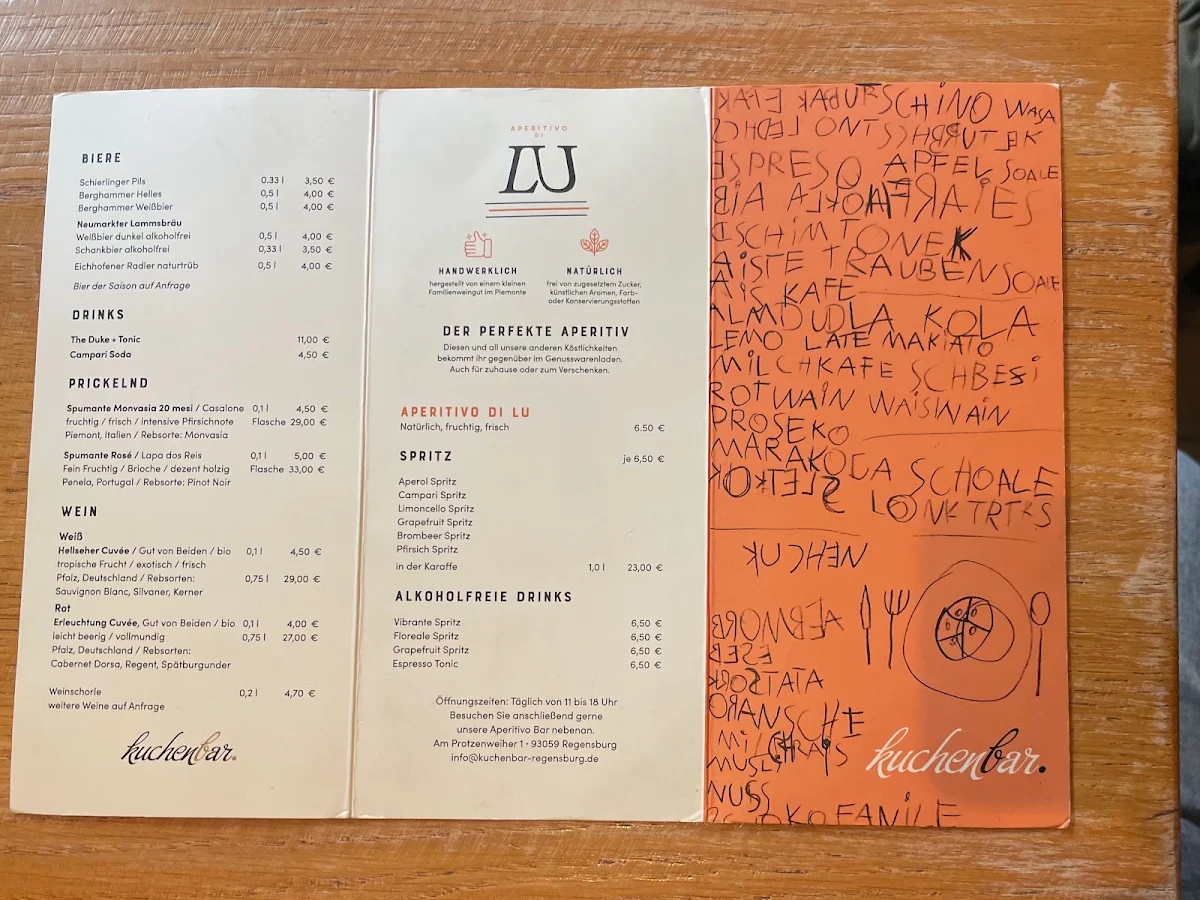 BIERE
Schierlinger Pils 0.33 l 3,50 €
Berghammer Helles 0,5 l 4,00 €
Berghammer Weißbier 0,5 l 4,00 €
Neumarkter Lammsbräu
Weißbier dunkel alkoholfrei 0,5 l 4,00 €
Schankbier alkoholfrei 0,33 l 3,50 €
Eichhofener Radler naturtrüb 0,5 l 4,00 €
Bier der Saison auf Anfrage
DRINKS
The Duke + Tonic 11,00 €
Campari Soda 4,50 €
PRICKELND
Spumante Monvasia 20 mesi / Casalone 0,1 l 4,50 €
fruchtig / frisch / intensive Pfirsichnote Flasche 29,00 €
Piemont, Italien / Rebsorte: Monvasia
Spumante Rosé / Lapa dos Reis 0,1 l 5,00 €
Fein Fruchtig / Brioche / dezent holzig Flasche 33,00 €
Penela, Portugal / Rebsorte: Pinot Noir
WEIN
Weiß
Hellseher Cuvée / Gut von Beiden / bio 0,1 l 4,50 €
tropische Frucht / exotisch / frisch
Pfalz, Deutschland / Rebsorten: 0,75 l 29,00 €
Sauvignon Blanc, Silvaner, Kerner
Rot
Erleuchtung Cuvée, Gut von Beiden / bio 0,1 l 4,00 €
leicht beerig / vollmundig 0,75 l 27,00 €
Pfalz, Deutschland / Rebsorten:
Cabernet Dorsa, Regent, Spätburgunder
Weinschorle 0,2 l 4,70 €
weitere Weine auf Anfrage
kuchenbar.
APERITIVO
DI
LU
HANDWERKLICH
hergestellt von einem kleinen
Familienweingut im Piemonte
NATÜRLICH
frei von zugesetztem Zucker,
künstlichen Aromen, Farb-
oder Konservierungsstoffen
DER PERFEKTE APERITIV
Diesen und all unsere anderen Köstlichkeiten
bekommt ihr gegenüber im Genusswarenladen.
Auch für zuhause oder zum Verschenken.
APERITIVO DI LU
Natürlich, fruchtig, frisch 6.50 €
SPRITZ je 6,50 €
Aperol Spritz
Campari Spritz
Limoncello Spritz
Grapefruit Spritz
Brombeer Spritz
Pfirsich Spritz
in der Karaffe 1,0 l 23,00 €
ALKOHOLFREIE DRINKS
Vibrante Spritz 6,50 €
Floreale Spritz 6,50 €
Grapefruit Spritz 6,50 €
Espresso Tonic 6,50 €
Öffnungszeiten: Täglich von 11 bis 18 Uhr
Besuchen Sie anschließend gerne
unsere Aperitivo Bar nebenan.
Am Protzenweiher 1 · 93059 Regensburg
info@kuchenbar-regensburg.de
SCHINO WASA
ESPRESO APFEL SOALE
TONEK
AISTE TRAUBEN SOALE
AIS KAFE
ALMDUDLA KOLA
LEMO LATE MAKIATO
MILCHKAFE SCHBESI
ROTWAIN WAISWAIN
PROSEKO
MARAKODA SCHOALE
LONKTRTKS
NEHCUK
KORSTATA
ORANSCHE
MUSLI
NUSS
SCHOKOFANILE
kuchenbar.